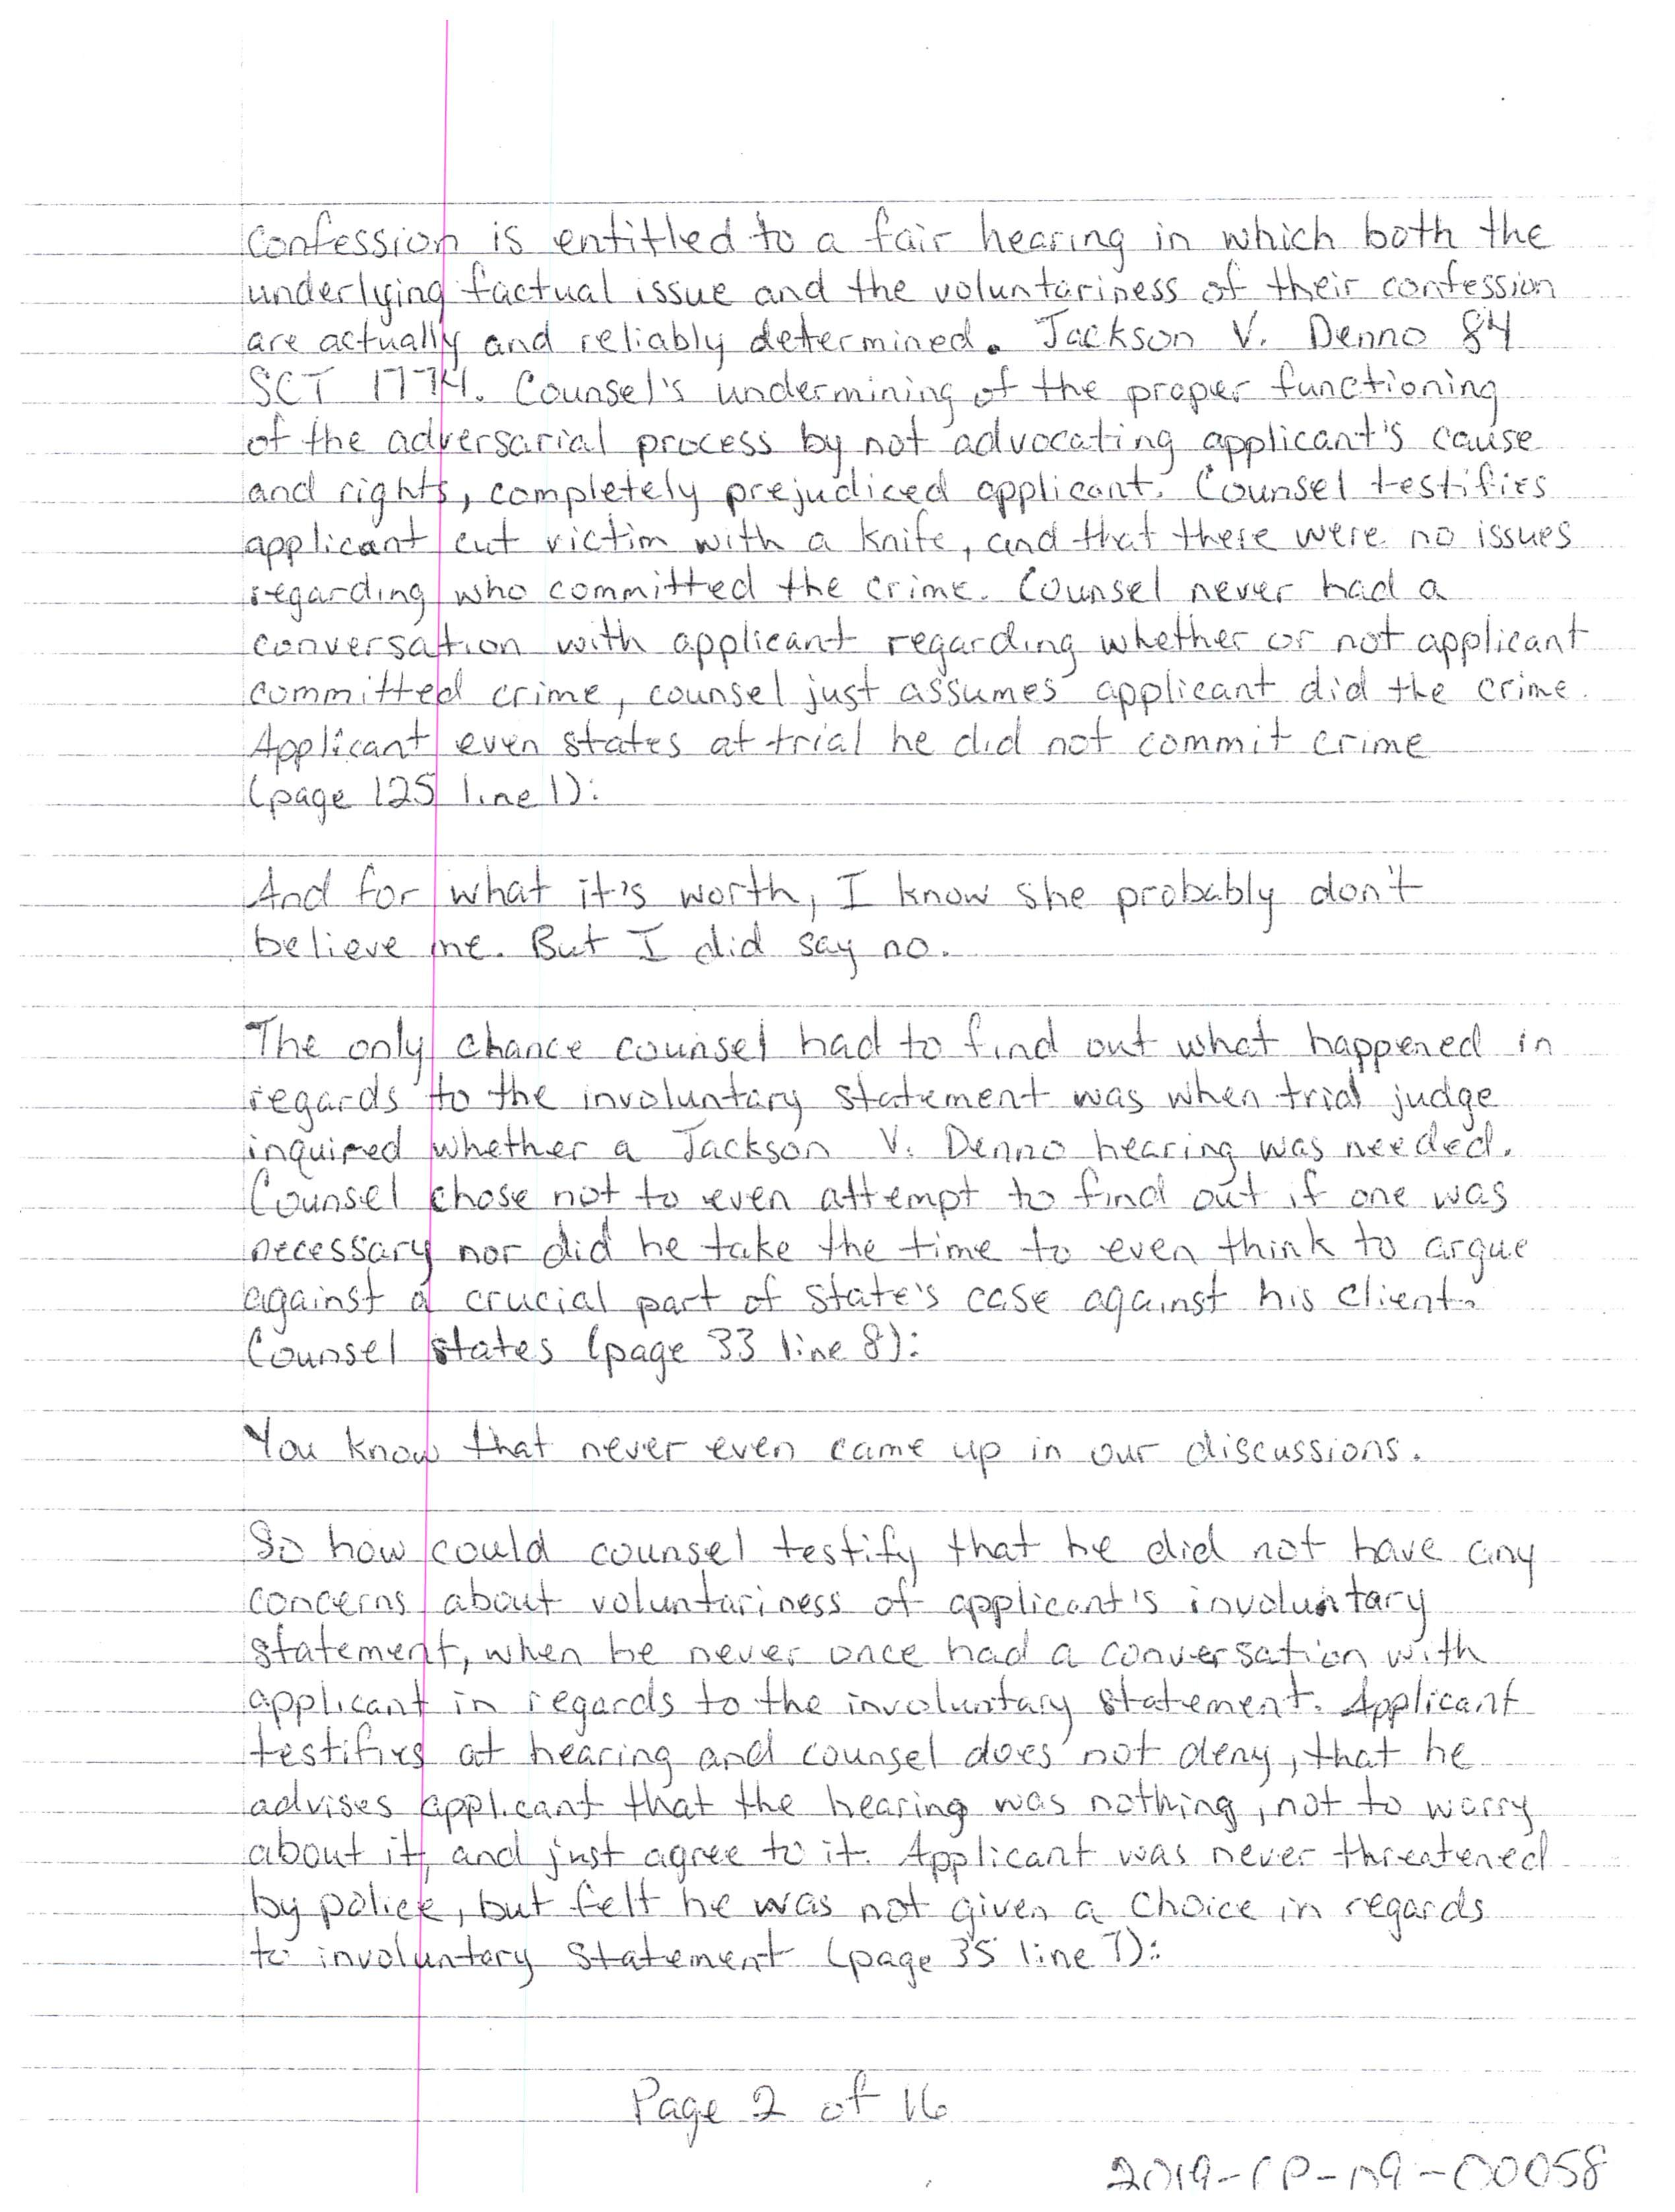 Confession is entitled to a fair hearing in which both the
underlying factual issue and the voluntariness of their confession
are actually and reliably determined. Jackson V. Denno 84
SCT 1774. Counsel's undermining of the proper functioning
of the adversarial process by not advocating applicant's cause
and rights, completely prejudiced applicant. Counsel testifies
applicant cut victim with a knife, and that there were no issues
regarding who committed the crime. Counsel never had a
conversation with applicant regarding whether or not applicant
committed crime, counsel just assumes applicant did the crime.
Applicant even states at trial he did not commit crime
(page 125 line 1):
And for what it's worth, I know she probably don't
believe me. But I did say no.
The only chance counsel had to find out what happened in
regards to the involuntary statement was when trial judge
inquired whether a Jackson V. Denno hearing was needed.
Counsel chose not to even attempt to find out if one was
necessary nor did he take the time to even think to argue
against a crucial part of state's case against his client.
Counsel states (page 33 line 8):
You know that never even came up in our discussions.
So how could counsel testify that he did not have any
concerns about voluntariness of applicant's involuntary
statement, when he never once had a conversation with
applicant in regards to the involuntary statement. Applicant
testifies at hearing and counsel does not deny, that he
advises applicant that the hearing was nothing, not to worry
about it, and just agree to it. Applicant was never threatened
by police, but felt he was not given a choice in regards
to involuntary statement (page 35 line 7):
Page 2 of 16
2019-CP-09-00058